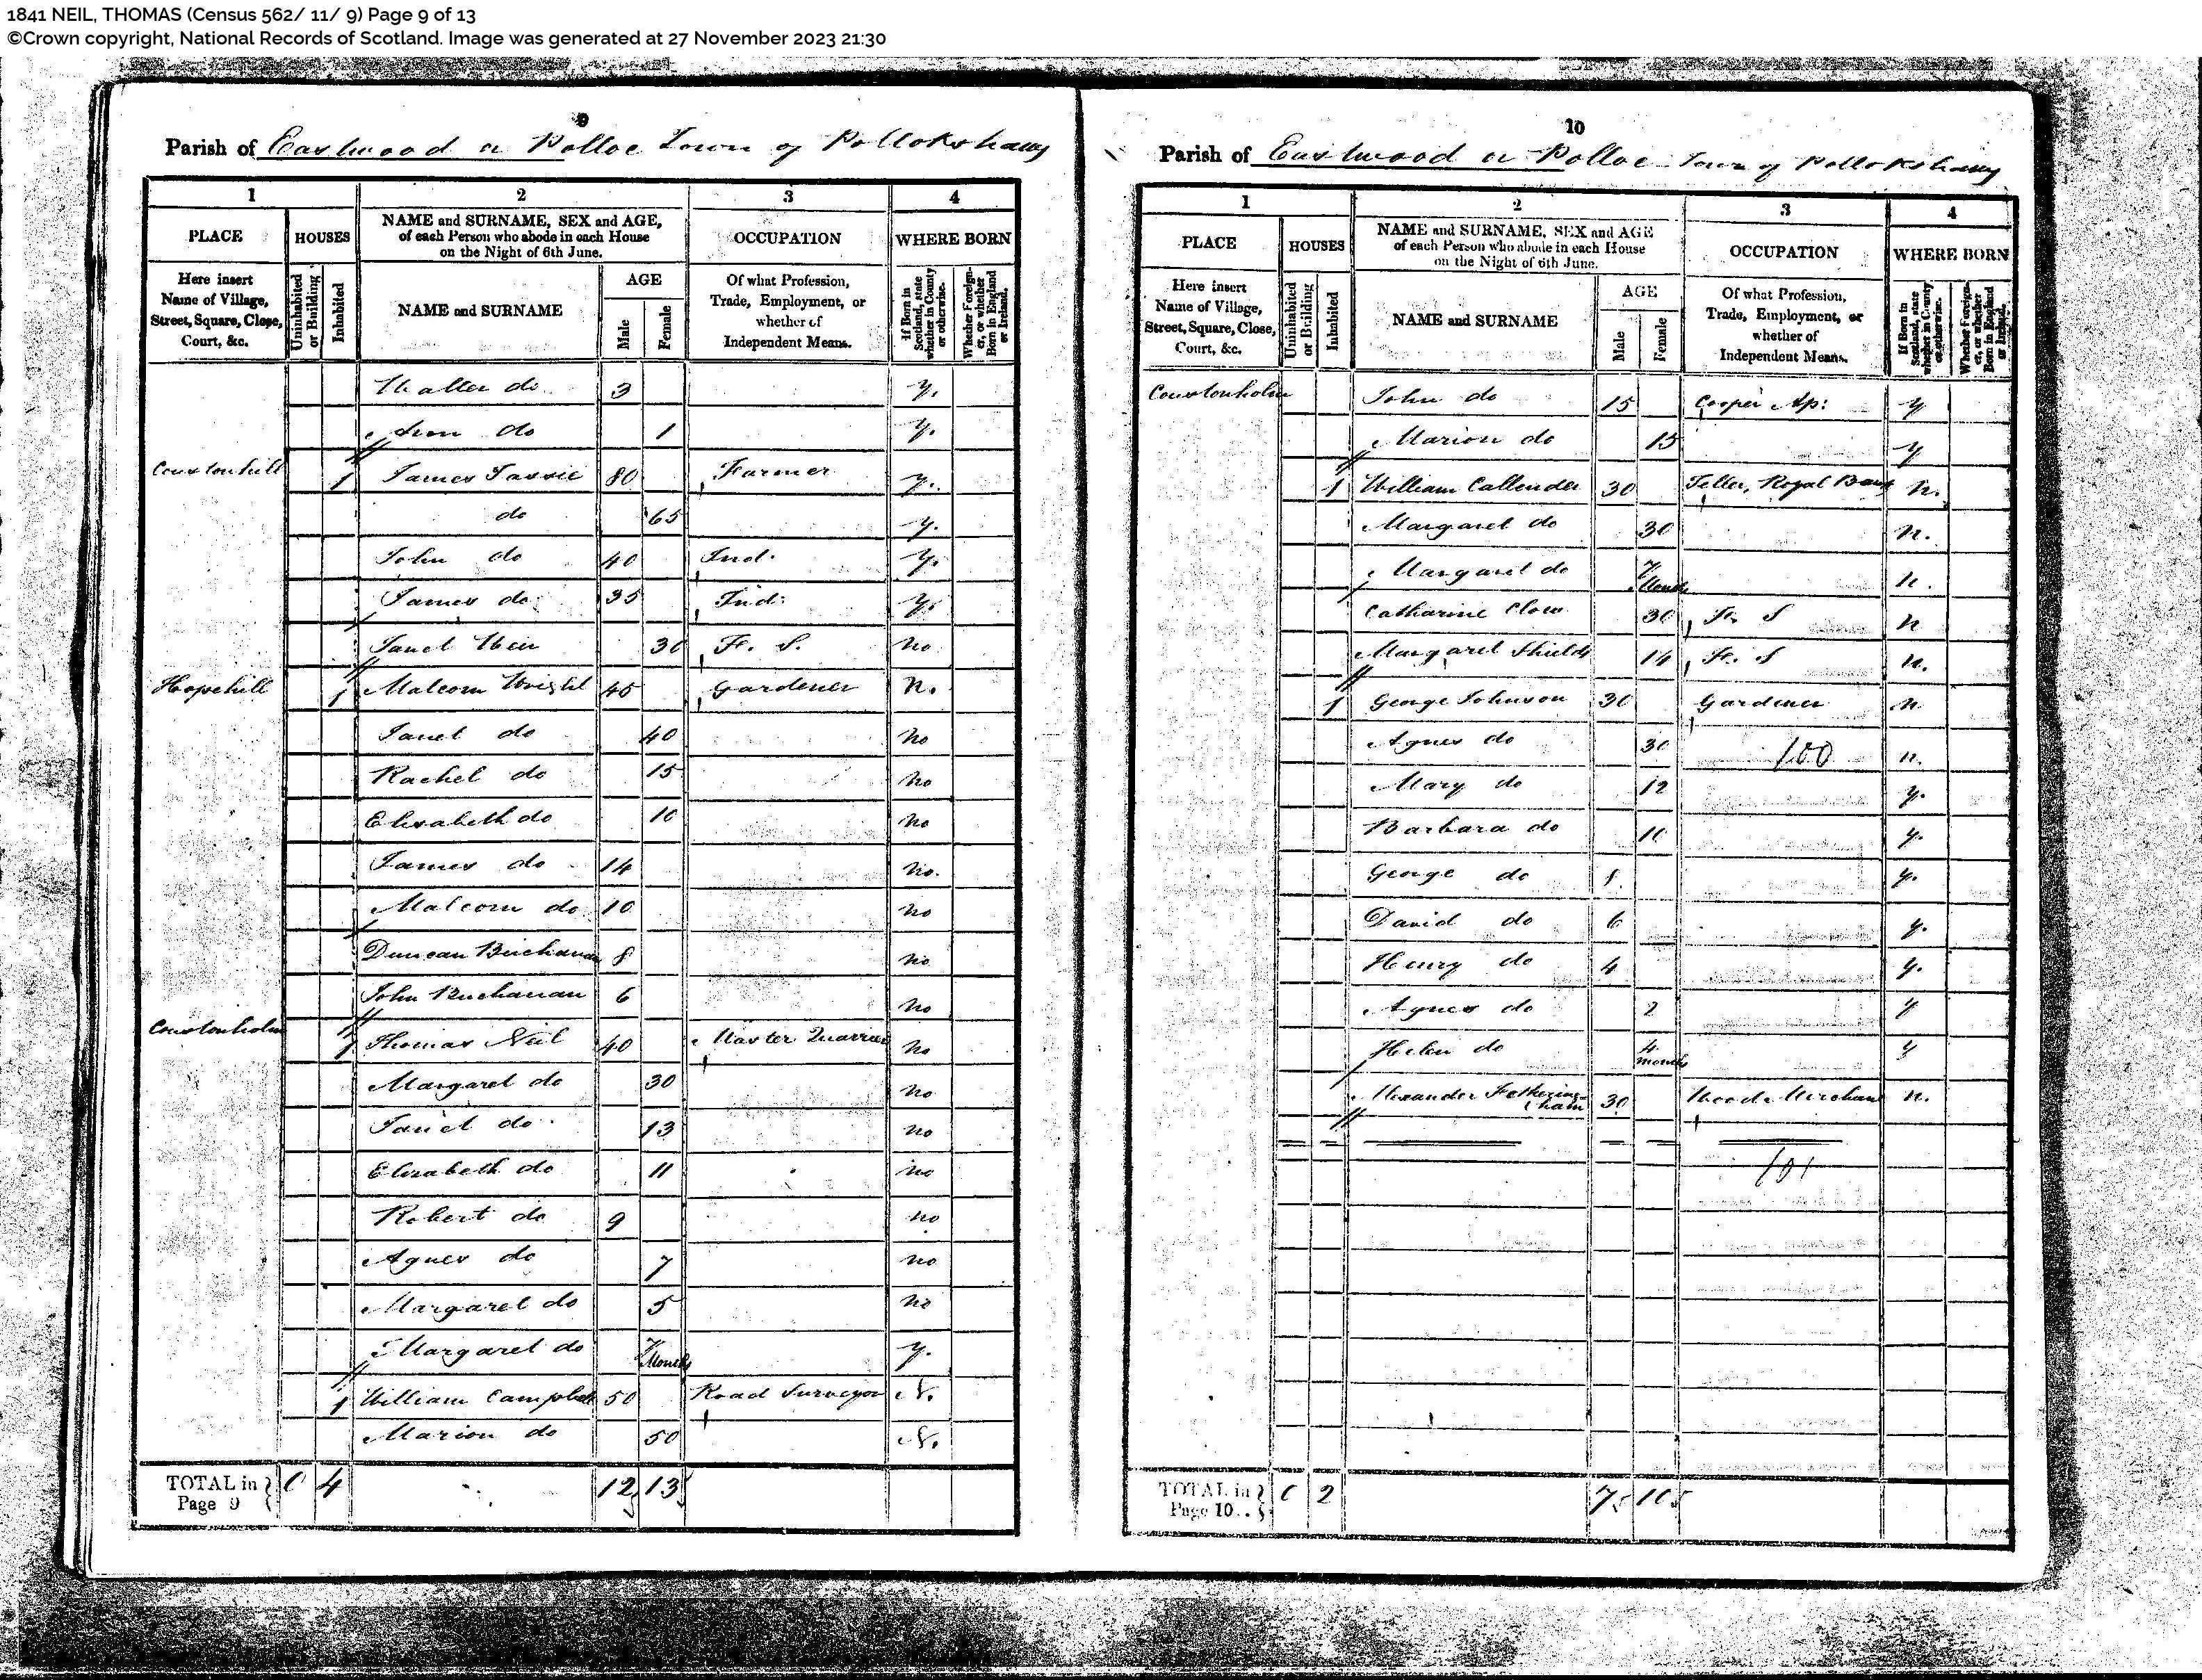 1841 NEIL, THOMAS (Census 562/ 11/ 9) Page 9 of 13
©Crown copyright, National Records of Scotland. Image was generated at 27 November 2023 21:30
9
Parish of Eastwood or Polloc Town of Pollokshaws
1 2 3 4
PLACE HOUSES NAME and SURNAME, SEX and AGE, of each Person who abode in each House on the Night of 6th June. OCCUPATION WHERE BORN
Here insert Name of Village, Street, Square, Close, Court, &c. Uninhabited or Building Inhabited NAME and SURNAME AGE Male Female Of what Profession, Trade, Employment, or whether of Independent Means. If Born in Scotland, state whether in County or otherwise. Whether Foreigner, or whether Born in England or Ireland.
Walter do 3 y.
do 1 y.
Coustonhill 1 James Tassie 80 Farmer y.
do 65 y.
John do 40 Ind. y.
James do 35 Ind: y.
Janet Weir 30 F. S. no
Hopehill 1 Malcom Wright 45 Gardener n.
Janet do 40 no
Rachel do 15 no
Elisabeth do 10 no
James do 14 no.
Malcom do 10 no
Duncan Buchanan 8 no
John Buchanan 6 no
Coustonholm 1 Thomas Neil 40 Master Quarrier no
Margaret do 30 no
Janet do 13 no
Elisabeth do 11 no
Robert do 9 no
Agnes do 7 no
Margaret do 5 no
Margaret do 7 Months y.
1 William Campbell 50 Road Surveyor N.
Marion do 50 N.
TOTAL in Page 9 0 4 12 13
10
Parish of Eastwood or Polloc Town of Pollokshaws
1 2 3 4
PLACE HOUSES NAME and SURNAME, SEX and AGE of each Person who abode in each House on the Night of 6th June. OCCUPATION WHERE BORN
Here insert Name of Village, Street, Square, Close, Court, &c. Uninhabited or Building Inhabited NAME and SURNAME AGE Male Female Of what Profession, Trade, Employment, or whether of Independent Means. If Born in Scotland, state whether in County or otherwise. Whether Foreigner, or whether Born in England or Ireland.
Coustonholm John do 15 Cooper Ap: y
Marion do 15 y
1 William Callender 30 Teller, Royal Bank n.
Margaret do 30 n.
Margaret do 7 Months n.
Catharine Clow 30 F. S n
Margaret Shields 14 F. S n.
1 George Johnson 30 Gardener n
Agnes do 30 100 n.
Mary do 12 y.
Barbara do 10 y.
George do 8 y.
David do 6 y.
Henry do 4 y.
Agnes do 2 y
Helen do 4 months y
Alexander Fetheringham 30 Wood Merchant n.
101
TOTAL in Page 10.. 0 2 7 10